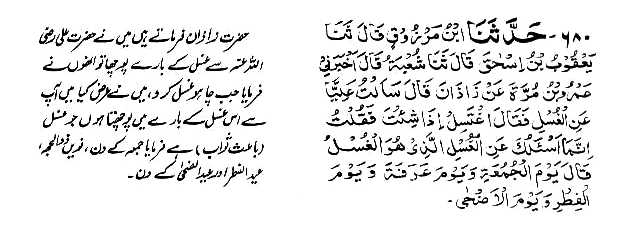 ۶۸۰- حَدَّثَنَا ابْنُ مَرْزُوْقٍ قَالَ ثَنَا
يَعْقُوْبُ بْنُ اِسْحٰقَ قَالَ ثَنَا شُعْبَةُ قَالَ اَخْبَرَنِيْ
عَمْرُو بْنُ مُرَّةَ عَنْ ذَاذَانَ قَالَ سَاَلْتُ عَلِيًّا
عَنِ الْغُسْلِ فَقَالَ اغْتَسِلْ اِذَا شِئْتَ فَقُلْتُ
اِنَّمَا اَسْئَلُكَ عَنِ الْغُسْلِ الَّذِيْ هُوَ الْغُسْلُ
قَالَ يَوْمَ الْجُمُعَةِ وَيَوْمَ عَرَفَةَ وَيَوْمَ
الْفِطْرِ وَيَوْمَ الْاَضْحٰى۔
حضرت زاذان فرماتے ہیں میں نے حضرت علی رضی
اللہ عنہ سے غسل کے بارے پوچھا تو انھوں نے
فرمایا جب چاہو غسل کرو، میں نے عرض کیا میں آپ
سے اس غسل کے بارے میں پوچھتا ہوں جو غسل
(باعث ثواب) ہے فرمایا جمعہ کے دن، نویں ذوالحجہ،
عید الفطر اور عید الضحٰی کے دن۔